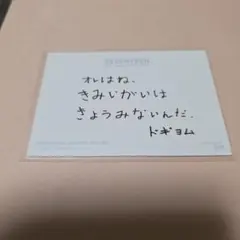 オレはね、
きみいがいは
きょうみないんだ。
ドギョム